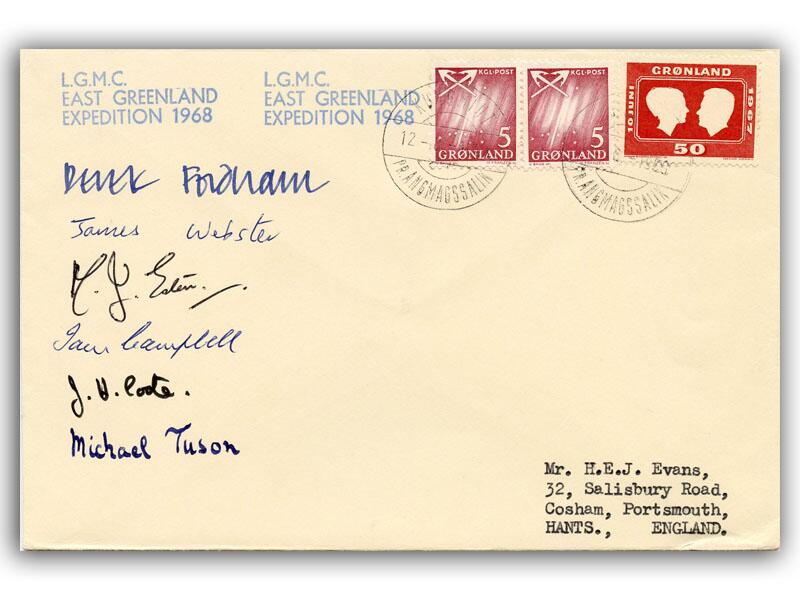 L.G.M.C.
EAST GREENLAND
EXPEDITION 1968
L.G.M.C.
EAST GREENLAND
EXPEDITION 1968
KGL·POST
5
GRØNLAND
KGL·POST
5
GRØNLAND
GRØNLAND
10 JUNI
1967
50
12
PR. ANGMAGSSALIK
PR. ANGMAGSSALIK
Derek Fordham
James Webster
Campbell
Michael Tuson
Mr. H.E.J. Evans,
32, Salisbury Road,
Cosham, Portsmouth,
HANTS., ENGLAND.